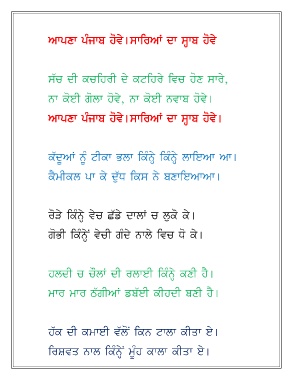 ਆਪਣਾ ਪੰਜਾਬ ਹੋਵੇ।ਸਾਰਿਆਂ ਦਾ ਸ੍ਹਾਬ ਹੋਵੇ
ਸੱਚ ਦੀ ਕਚਹਿਰੀ ਦੇ ਕਟਹਿਰੇ ਵਿਚ ਹੋਣ ਸਾਰੇ,
ਨਾ ਕੋਈ ਗੋਲਾ ਹੋਵੇ, ਨਾ ਕੋਈ ਨਵਾਬ ਹੋਵੇ।
ਆਪਣਾ ਪੰਜਾਬ ਹੋਵੇ।ਸਾਰਿਆਂ ਦਾ ਸ੍ਹਾਬ ਹੋਵੇ।
ਕੱਦੂਆਂ ਨੂੰ ਟੀਕਾ ਭਲਾ ਕਿੰਨ੍ਹੇ ਕਿੰਨ੍ਹੇ ਲਾਇਆ ਆ।
ਕੈਮੀਕਲ ਪਾ ਕੇ ਦੁੱਧ ਕਿਸ ਨੇ ਬਣਾਇਆਆ।
ਰੋੜੇ ਕਿੰਨ੍ਹੇ ਵੇਚ ਛੱਡੇ ਦਾਲਾਂ ਚ ਲੁਕੋ ਕੇ।
ਗੋਭੀ ਕਿੰਨ੍ਹੇਂ ਵੇਚੀ ਗੰਦੇ ਨਾਲੇ ਵਿਚ ਧੋ ਕੇ।
ਹਲਦੀ ਚ ਚੌਲਾਂ ਦੀ ਰਲਾਈ ਕਿੰਨ੍ਹੇ ਕਣੀ ਹੈ।
ਮਾਰ ਮਾਰ ਠੱਗੀਆਂ ਡਬੱਈ ਕੀਹਦੀ ਬਣੀ ਹੈ।
ਹੱਕ ਦੀ ਕਮਾਈ ਵੱਲੋਂ ਕਿਨ ਟਾਲਾ ਕੀਤਾ ਏ।
ਰਿਸ਼ਵਤ ਨਾਲ ਕਿੰਨ੍ਹੇਂ ਮੂੰਹ ਕਾਲਾ ਕੀਤਾ ਏ।